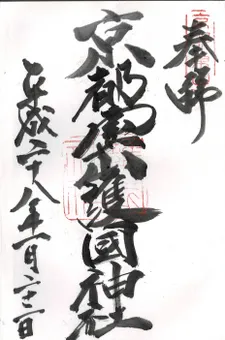 奉拝
京都霊護国神社
平成二十八年一月二十二日